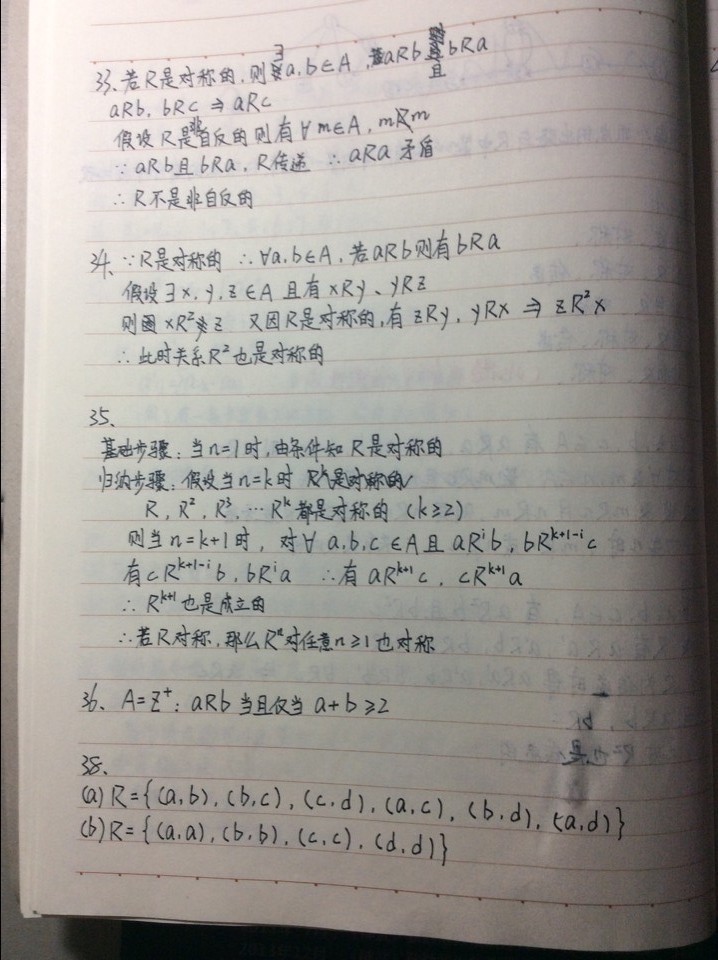 33. 若R是对称的,则∃a,b∈A,aRb且bRa
aRb, bRc ⇒ aRc
假设R是非自反的则有∀m∈A, mR̸m
∵ aRb且bRa, R传递 ∴ aRa 矛盾
∴ R不是非自反的
34. ∵R是对称的 ∴∀a,b∈A,若aRb则有bRa
假设∃x,y,z∈A 且有xRy、yRz
则 xR²z 又因R是对称的,有zRy,yRx ⇒ zR²x
∴此时关系R²也是对称的
35.
基础步骤:当n=1时,由条件知R是对称的
归纳步骤:假设当n=k时 Rᵏ是对称的
R, R², R³, … Rᵏ都是对称的 (k≥2)
则当n=k+1时,对∀a,b,c∈A且aRⁱb, bRᵏ⁺¹⁻ⁱc
有cRᵏ⁺¹⁻ⁱb, bRⁱa ∴有aRᵏ⁺¹c, cRᵏ⁺¹a
∴ Rᵏ⁺¹也是成立的
∴若R对称,那么Rⁿ对任意n≥1也对称
36. A=Z⁺: aRb当且仅当a+b≥2
38.
(a) R={(a,b), (b,c), (c,d), (a,c), (b,d), (a,d)}
(b) R={(a,a), (b,b), (c,c), (d,d)}